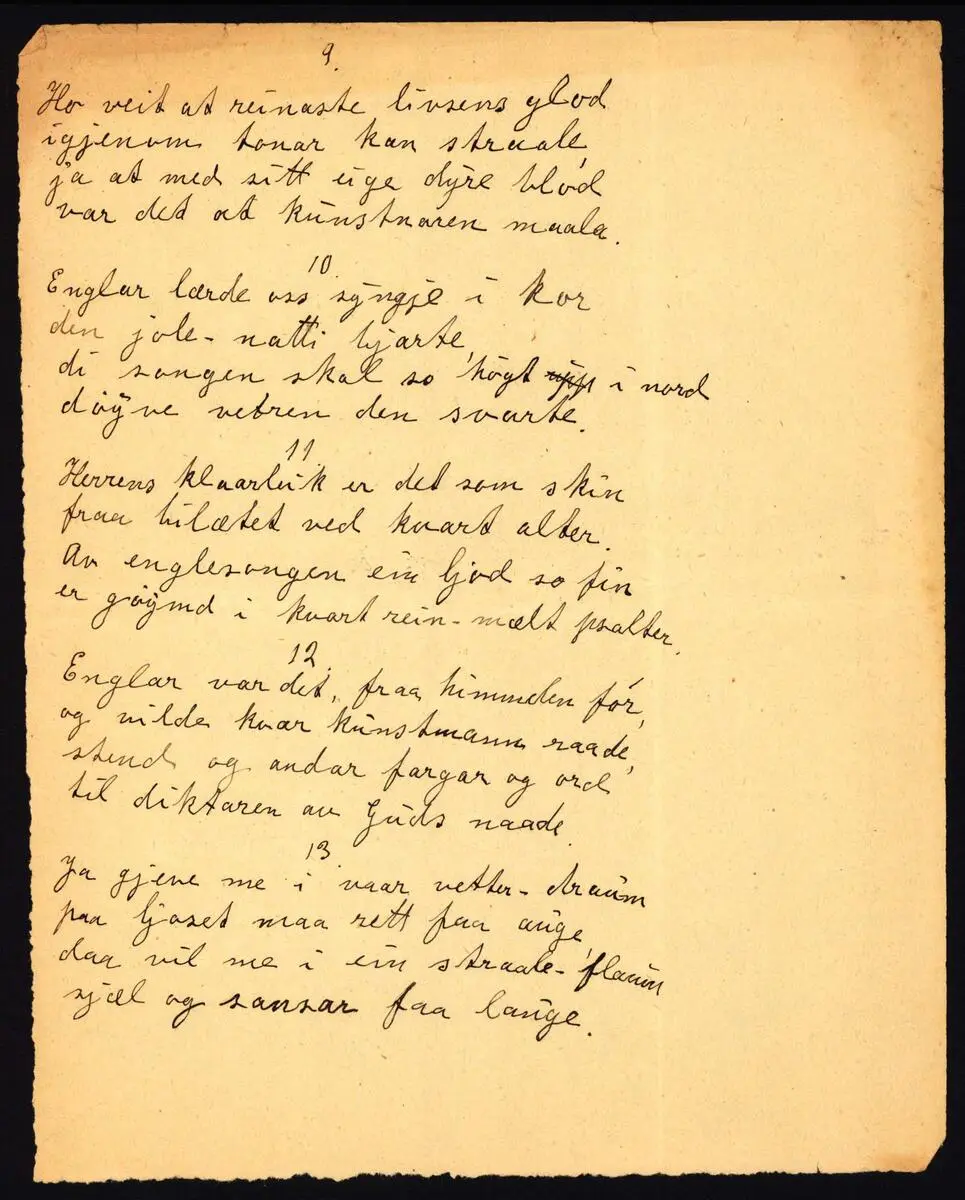 9.
Ho veit at reinaste livsens glod
igjenom tonar kan straale,
ja at med sitt eige dyre blod
var det at kunstnaren maala.
10.
Englar lærde oss syngje i kor
den jole-natti bjarte,
di songen skal so högt upp i nord
döyve vetren den svarte.
11.
Herrens klaarleik er det som skin
fraa bilætet ved kvart alter.
Av englesongen ein ljod so fin
er göymd i kvart rein-mælt psalter.
12.
Englar var det, fraa himmelen fór,
og vilde kvar kunstmann raade,
stend og andar fargar og ord
til diktaren av Guds naade.
13.
Ja gjeve me i vaar vetter-draum
paa ljoset maa rett faa auge,
daa vil me i ein straale-flaum
sjæl og sansar faa lauge.